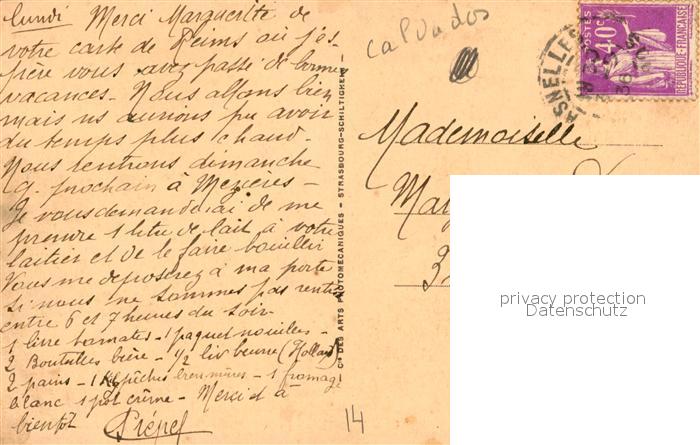 Lundi Merci Marguerite de
votre carte de Reims où j'es-
père vous avez passé de bonnes
vacances - Nous allons bien
mais ns aurions pu avoir
du temps plus chaud.
Nous rentrons dimanche
9. prochain à Mezières -
Je vous demanderai de me
prendre 1 litre de lait à votre
laitier et de le faire bouillir
Vous me deposerez à ma porte
si nous ne sommes pas rentrés
entre 6 et 7 heures du soir.
1 livre tomates - 1 paquet nouilles -
2 Bouteilles bière - 1/2 liv beurre (Holland)
2 pains - 1 K pêches - 1 fromage
blanc 1 pot crême - Merci et à
bientôt
CIE DES ARTS PHOTOMECANIQUES - STRASBOURG-SCHILTIGHEIM
calvados
ASNELLES
SUR
36
POSTES
40c
REPUBLIQUE-FRANÇAISE
Mademoiselle
Mar
3
privacy protection
Datenschutz
14